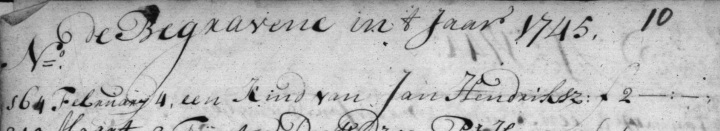 de Begravene in 't Jaar 1745. 10
No.
164 February 4, een Kind van Jan Hendriksz: f 2 —:—:
Maart